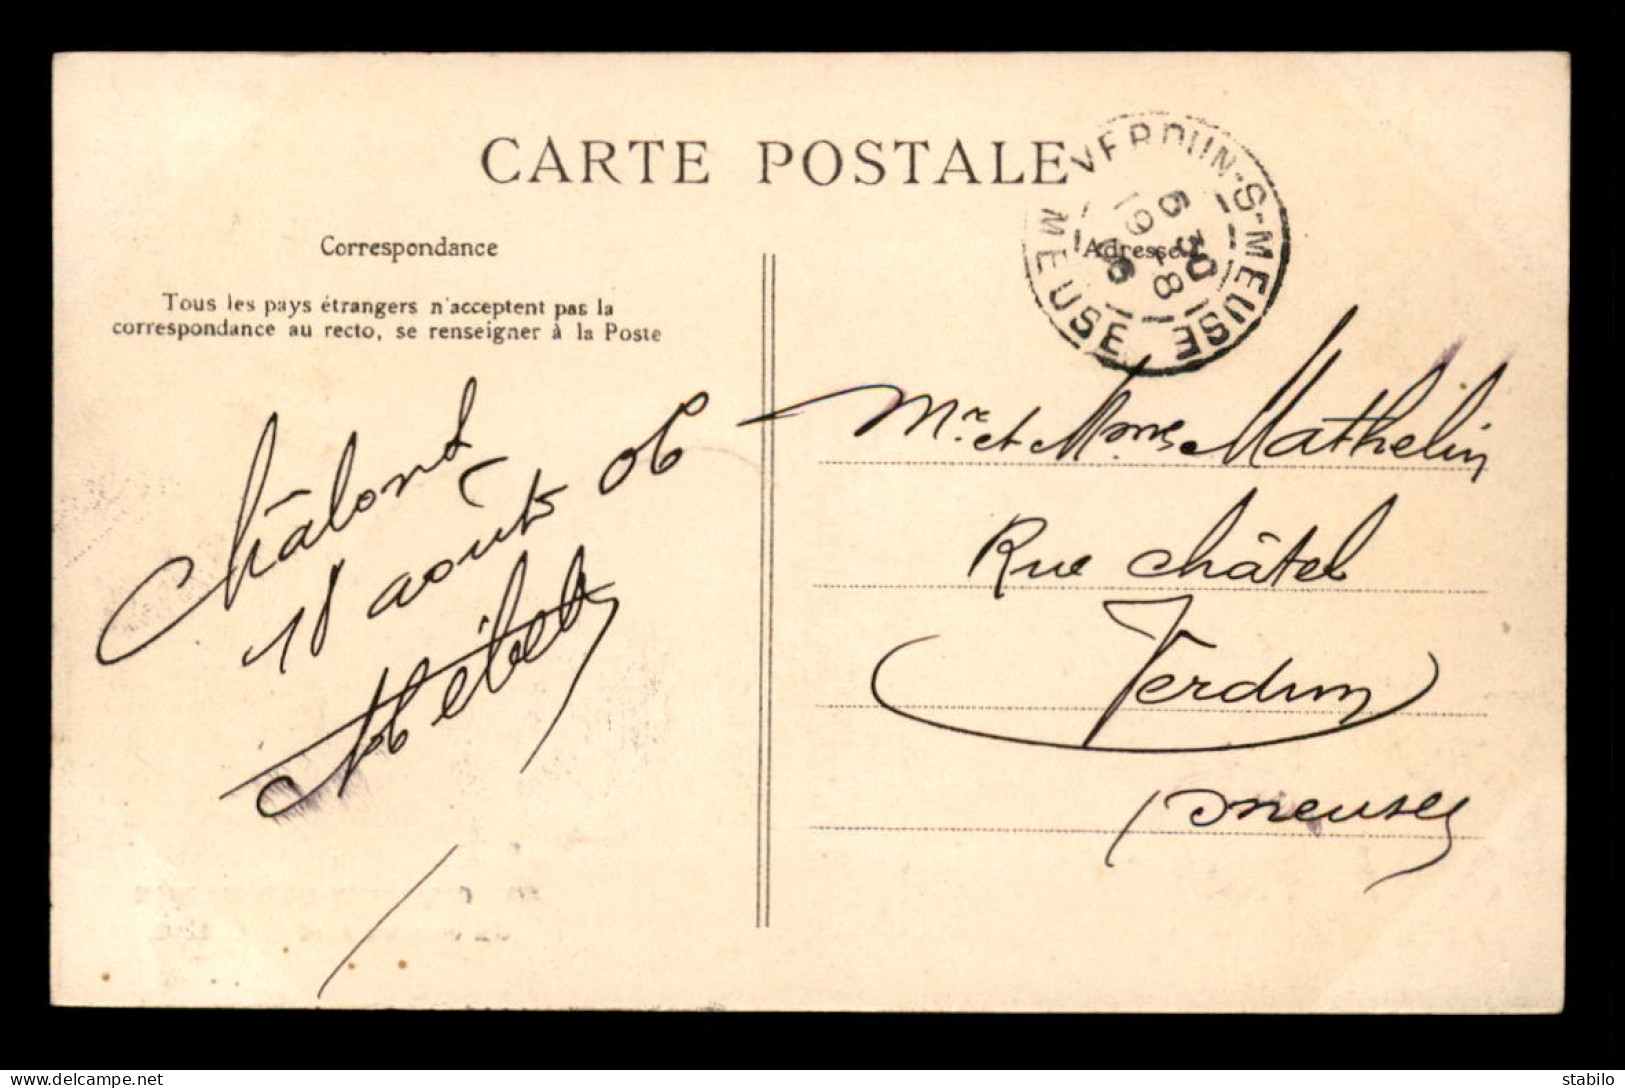 CARTE POSTALE
Correspondance
Tous les pays étrangers n'acceptent pas la
correspondance au recto, se renseigner à la Poste
Châlons
18 août 06
Adresse
VERDUN-S-MEUSE
6 30
19-8
06
MEUSE
Mr. et Mme Mathelin
Rue Châtel
Verdun
(Meuse)
delcampe.net
stabilo